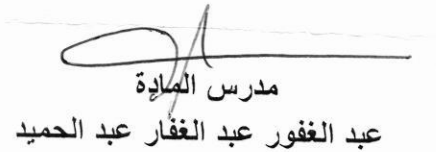 مدرس المادة
عبد الغفور عبد الغفار عبد الحميد